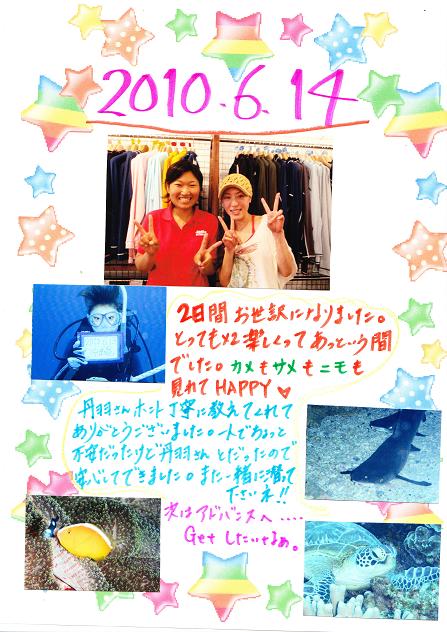 2010.6.14
2日間お世話になりました。
とってもx2楽しくってあっという間
でした。カメもサメもニモも
見れてHAPPY♡
丹羽さんホント丁寧に教えてくれて
ありがとうございました。1人でちょっと
不安だったけど丹羽さんとだったので
安心してできました。また一緒に潜って
下さいネ!!
次はアドバンスへ....
Getしたいなぁ。